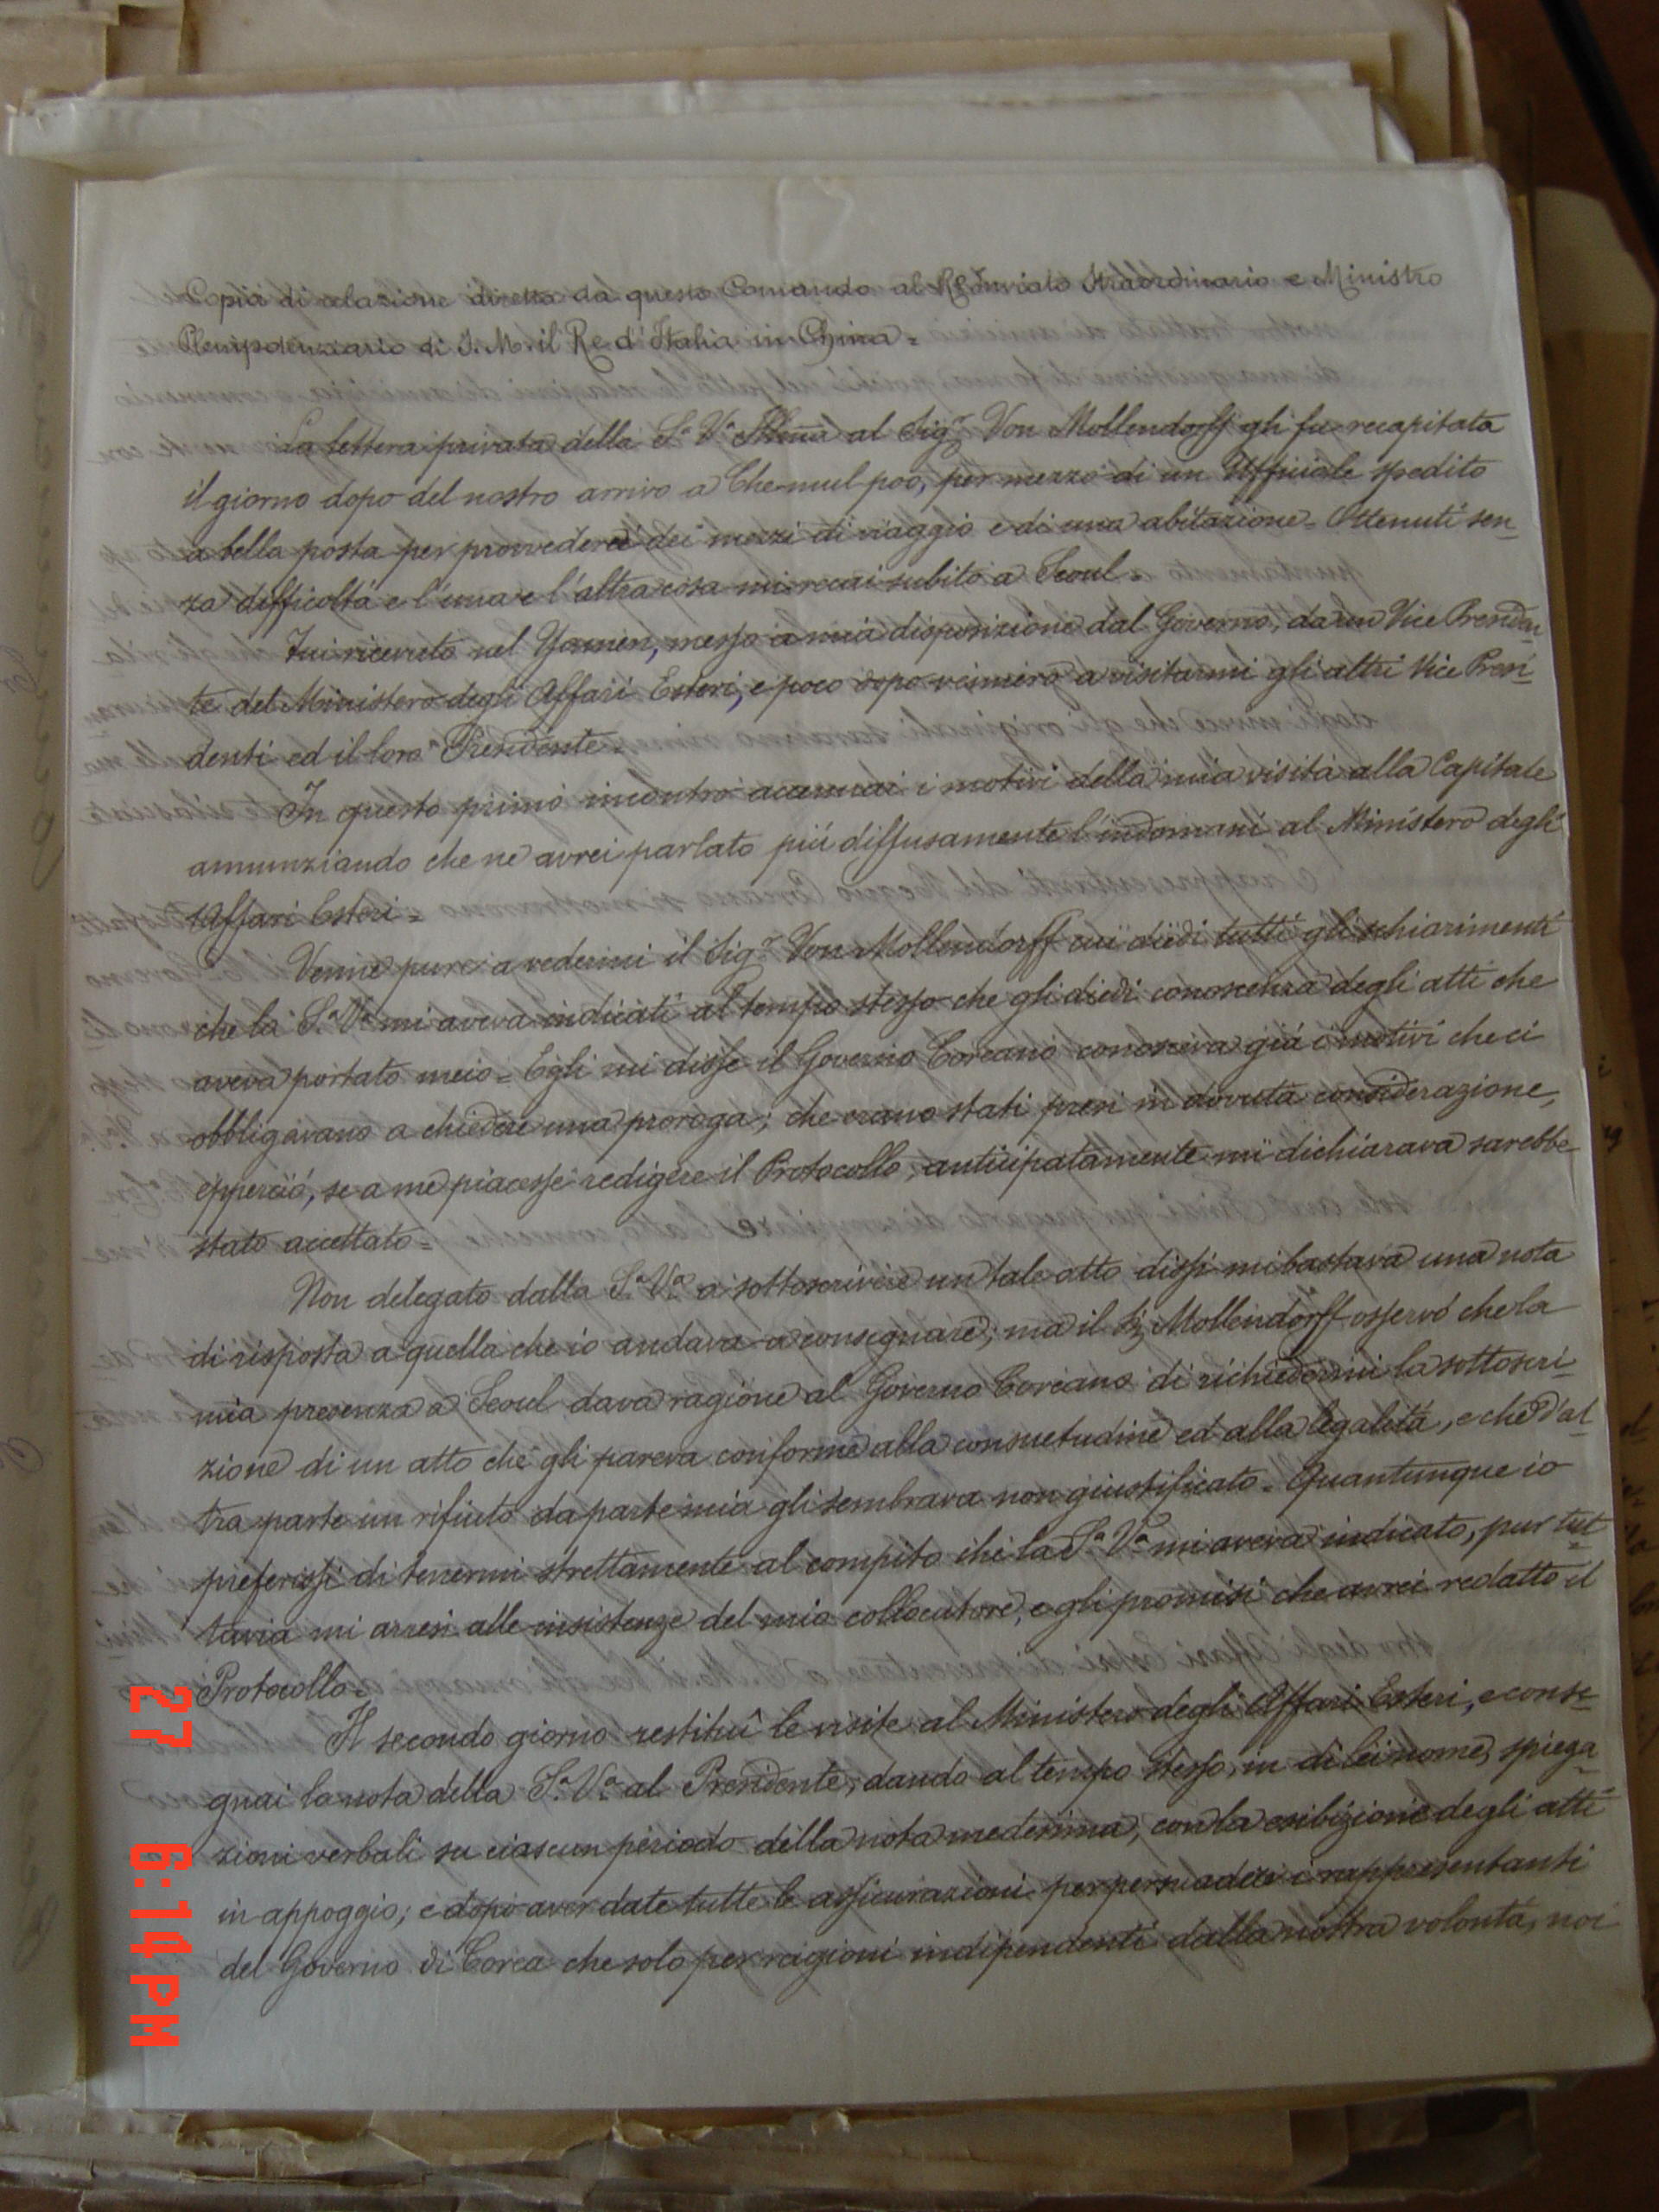 Copia di relazione diretta da questo Comando al R. Inviato Straordinario e Ministro
Plenipotenziario di S. M. il Re d'Italia in China =
La lettera privata della S.a V.a Ill.ma al Sig.r Von Mollendorff gli fu recapitata
il giorno dopo del nostro arrivo a Che-mul-poo, per mezzo di un Ufficiale spedito
a bella posta per provvederci dei mezzi di viaggio e di una abitazione = Ottenuti sen=
za difficoltá e l'una e l'altra cosa mi recai subito a Seoul =
Fui ricevuto nel Yamen, messo a mia disposizione dal Governo, da un Vice Presiden
te del Ministero degli Affari Esteri, e poco dopo vennero a visitarmi gli altri Vice Presi=
denti ed il loro Presidente =
In questo primo incontro accennai i motivi della mia visita alla Capitale
annunziando che ne avrei parlato piú diffusamente l'indomani al Ministero degli
Affari Esteri =
Venne pure a vedermi il Sig.r Von Mollendorff cui diedi tutti gli schiarimenti
che la S.a V.a mi aveva indicati al tempo stesso che gli diedi conoscenza degli atti che
aveva portato meco = Egli mi disse il Governo Coreano conosceva giá i motivi che ci
obbligavano a chiedere una proroga; che erano stati presi in dovuta considerazione,
epperció, se a me piacesse redigere il Protocollo, anticipatamente mi dichiarava sarebbe
stato accettato =
Non delegato dalla S.a V.a a sottoscrivere un tale atto dissi mi bastava una nota
di risposta a quella che io andava a consegnare; ma il Sig. Mollendorff osservó che la
mia presenza a Seoul dava ragione al Governo Coreano di richiedermi la sottoscri=
zione di un atto che gli pareva conforme alla consuetudine ed alla legalitá, e che d'al
tra parte un rifiuto da parte mia gli sembrava non giustificato = Quantunque io
preferissi di tenermi strettamente al compito che la S.a V.a mi aveva indicato, pur tut
tavia mi arresi alle insistenze del mio collocutore, e gli promisi che avrei redatto il
Protocollo =
Il secondo giorno restituî le visite al Ministero degli Affari Esteri, e conse=
gnai la nota della S.a V.a al Presidente, dando al tempo stesso, in di lei nome, spiega=
zioni verbali su ciascun periodo della nota medesima, con la esibizione degli atti
in appoggio; e dopo aver date tutte le assicurazioni per persuadere i rappresentanti
del Governo di Corea che solo per ragioni indipendenti dalla nostra volontá, noi
27 6:14PM